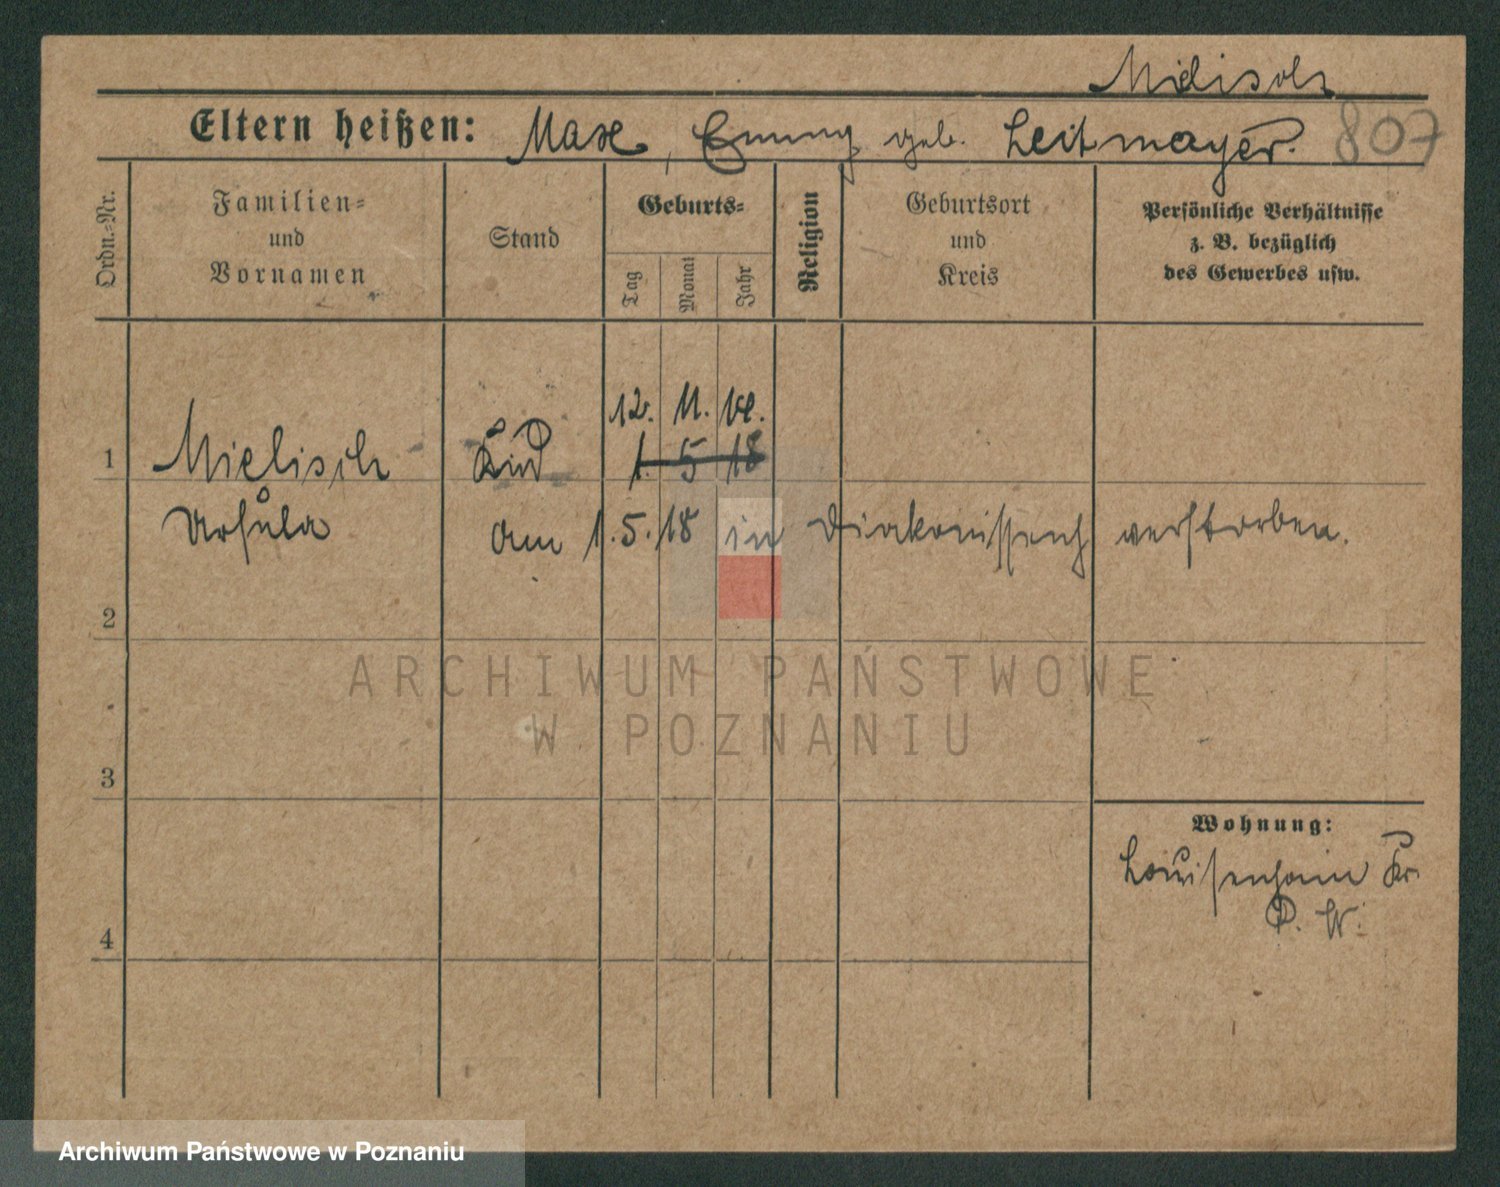 Midisch
Eltern heißen: Max, Emmy geb. Leitmayer. 807
Ordn.-Nr. Familien- und Vornamen Stand Geburts- Tag Monat Jahr Religion Geburtsort und Kreis Persönliche Verhältnisse z. B. bezüglich des Gewerbes usw.
12. 11.
1 Mielisch Kind 1. 5 18
Ursula am 1.5.18 in Diakonissenh verstorben.
2
3
Wohnung:
Louisenhain Kr.
P. W.
4
ARCHIWUM PAŃSTWOWE
W POZNANIU
Archiwum Państwowe w Poznaniu